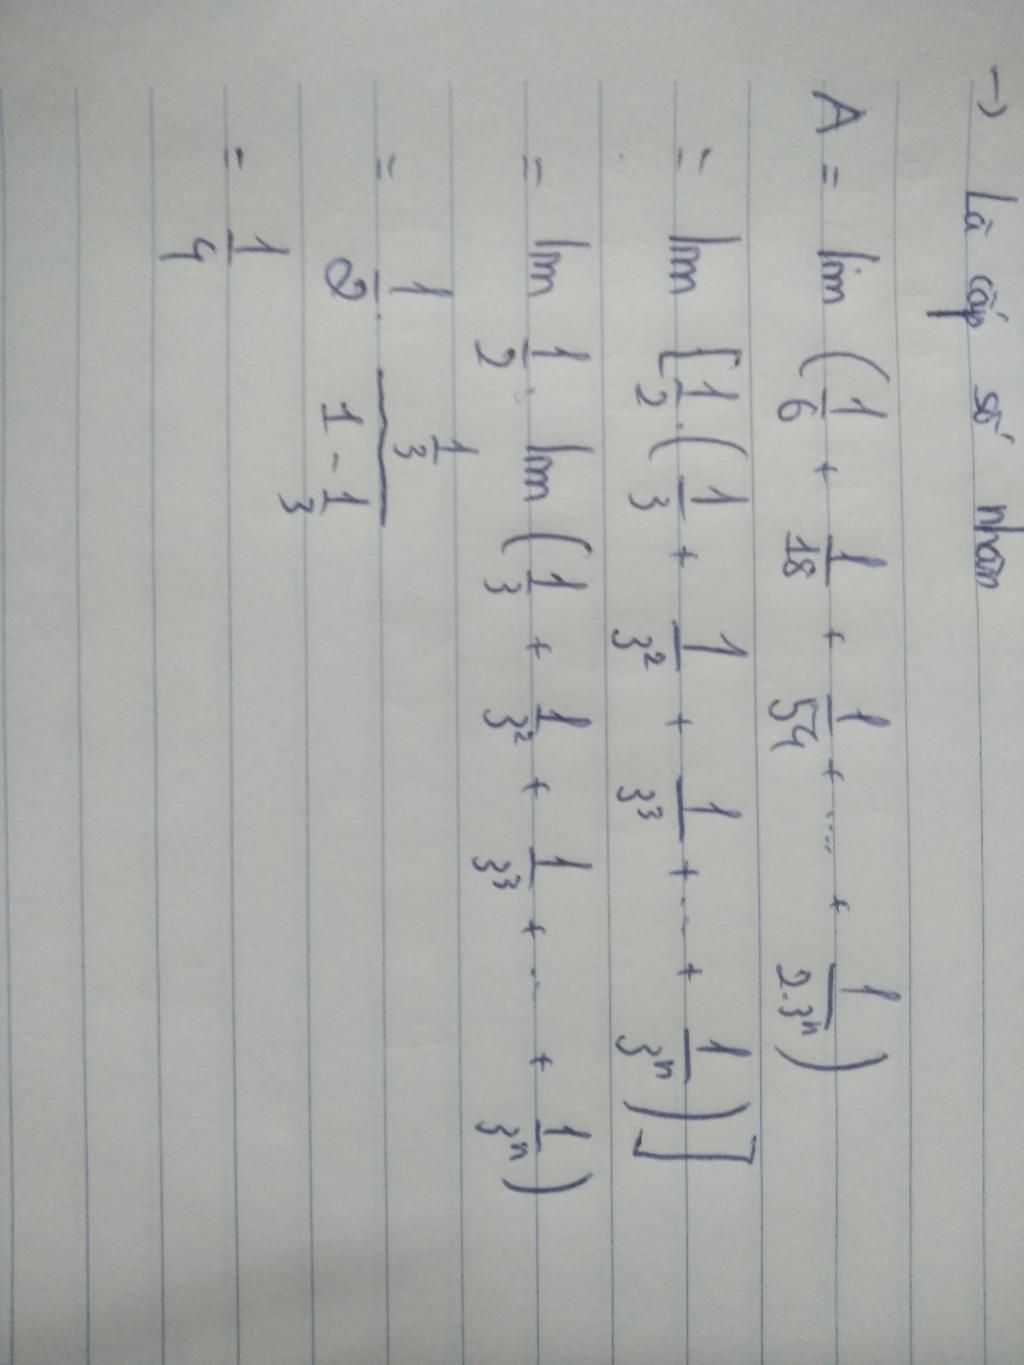 → Là cấp số nhân
A = lim (1/6 + 1/18 + 1/54 + .... + 1/2.3ⁿ)
= lim [1/2.(1/3 + 1/3² + 1/3³ + ... + 1/3ⁿ)]
= lim 1/2 . lim (1/3 + 1/3² + 1/3³ + ... + 1/3ⁿ)
= 1/2 . (1/3)/(1 - 1/3)
= 1/4